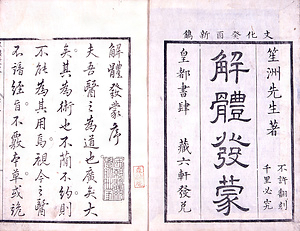 文化癸酉新鐫
笙洲先生著
不許翻刻
千里必究
解體發蒙
皇都書肆 藏六軒發兌
解體發蒙序
夫吾醫之為道也廣矣大
矣其為術也不簡不約則
不能為其用焉視今之醫
不諳經旨不覈本草或詭